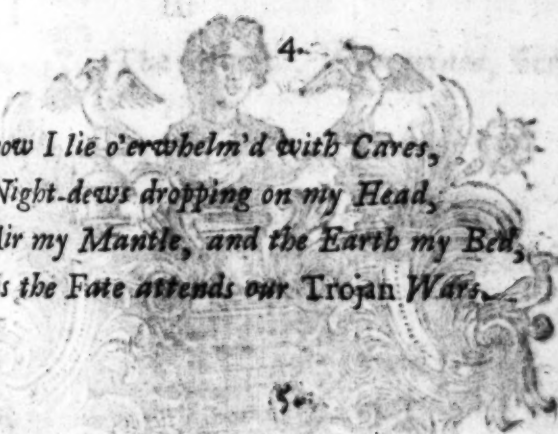 4.
ow I lie o'erwhelm'd with Cares,
Night-dews dropping on my Head,
Air my Mantle, and the Earth my Bed,
is the Fate attends our Trojan Wars.
5.